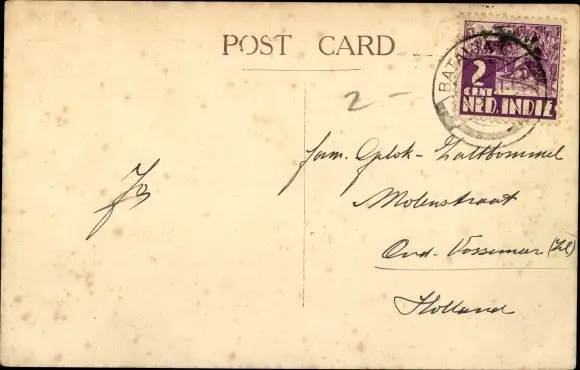 POST CARD
BATAVIA-C
2
CENT
NED. INDIE
2 -
Jo
Fam. Oplok- Zaltbommel
Molenstraat
Oud-Vossemeer (Zl)
Holland